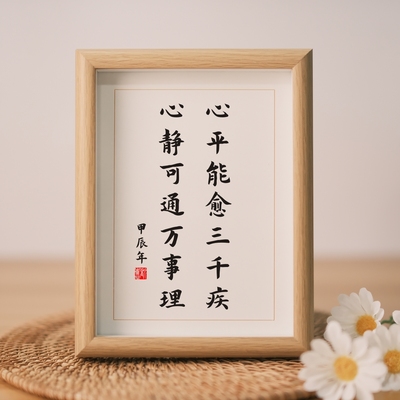 心平能愈三千疾
心静可通万事理
甲辰年